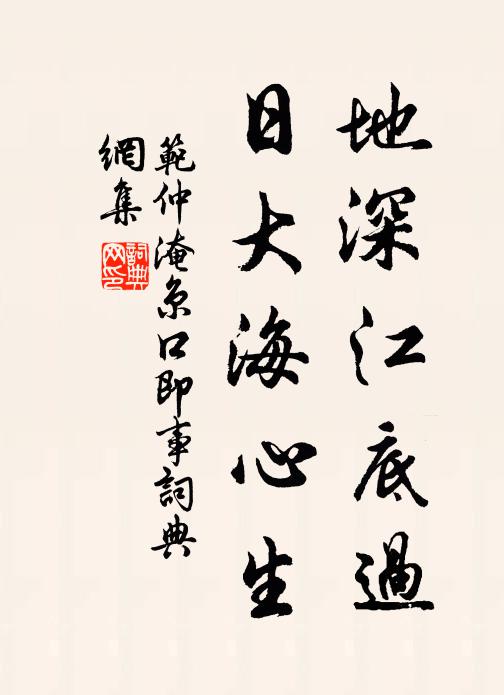 地深江底過
日大海心生
範仲淹京口即事詞典
網集
詞典
网印